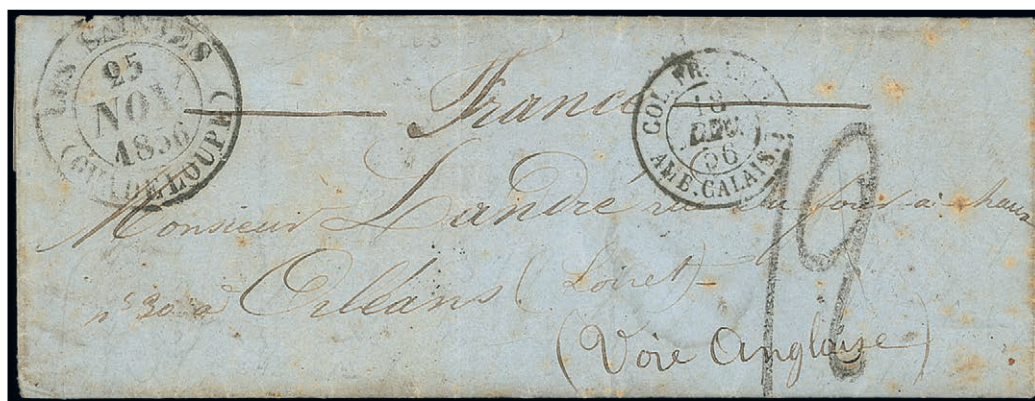 LES SAINTES
25
NOV.
1856
(GUADELOUPE)
France
COL. FR.
18
DEC.
56
AMB. CALAIS
12
Monsieur Landré rue du four à chaux
n° 30 à Orléans (Loiret)
(Voie Anglaise)